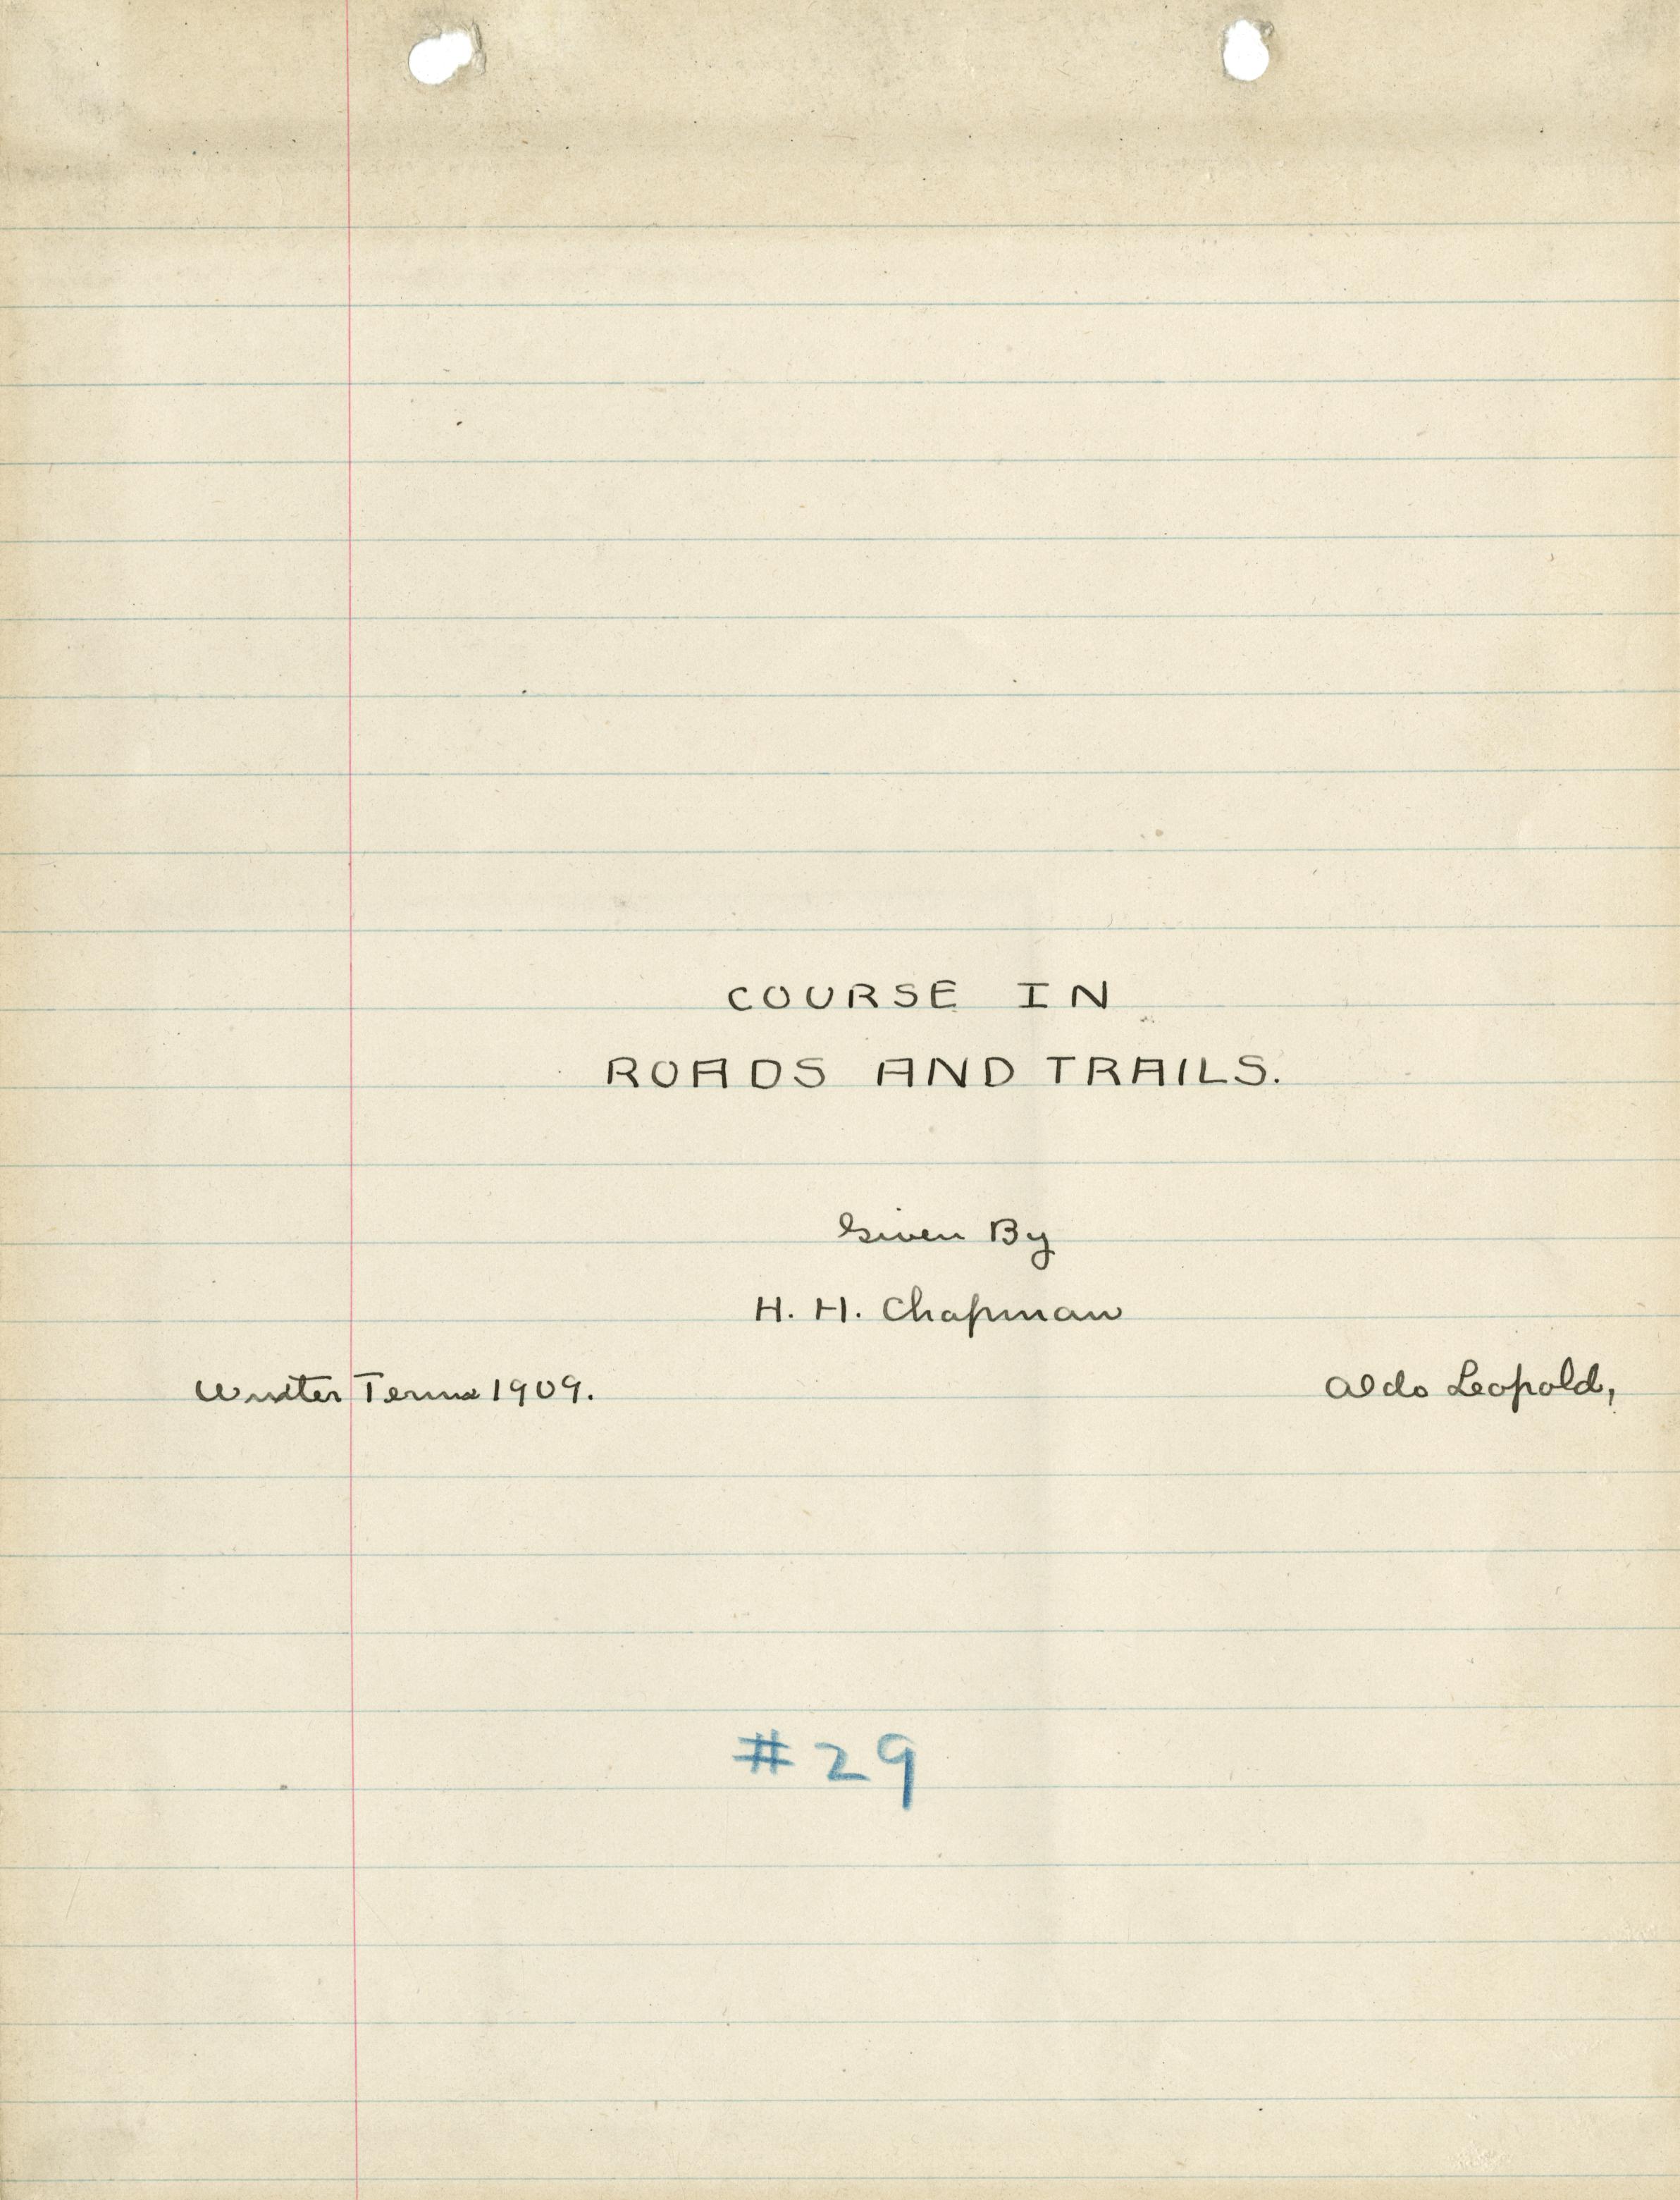 COURSE IN
ROADS AND TRAILS.
Given By
H. H. Chapman
Winter Term 1909.
Aldo Leopold,
#29